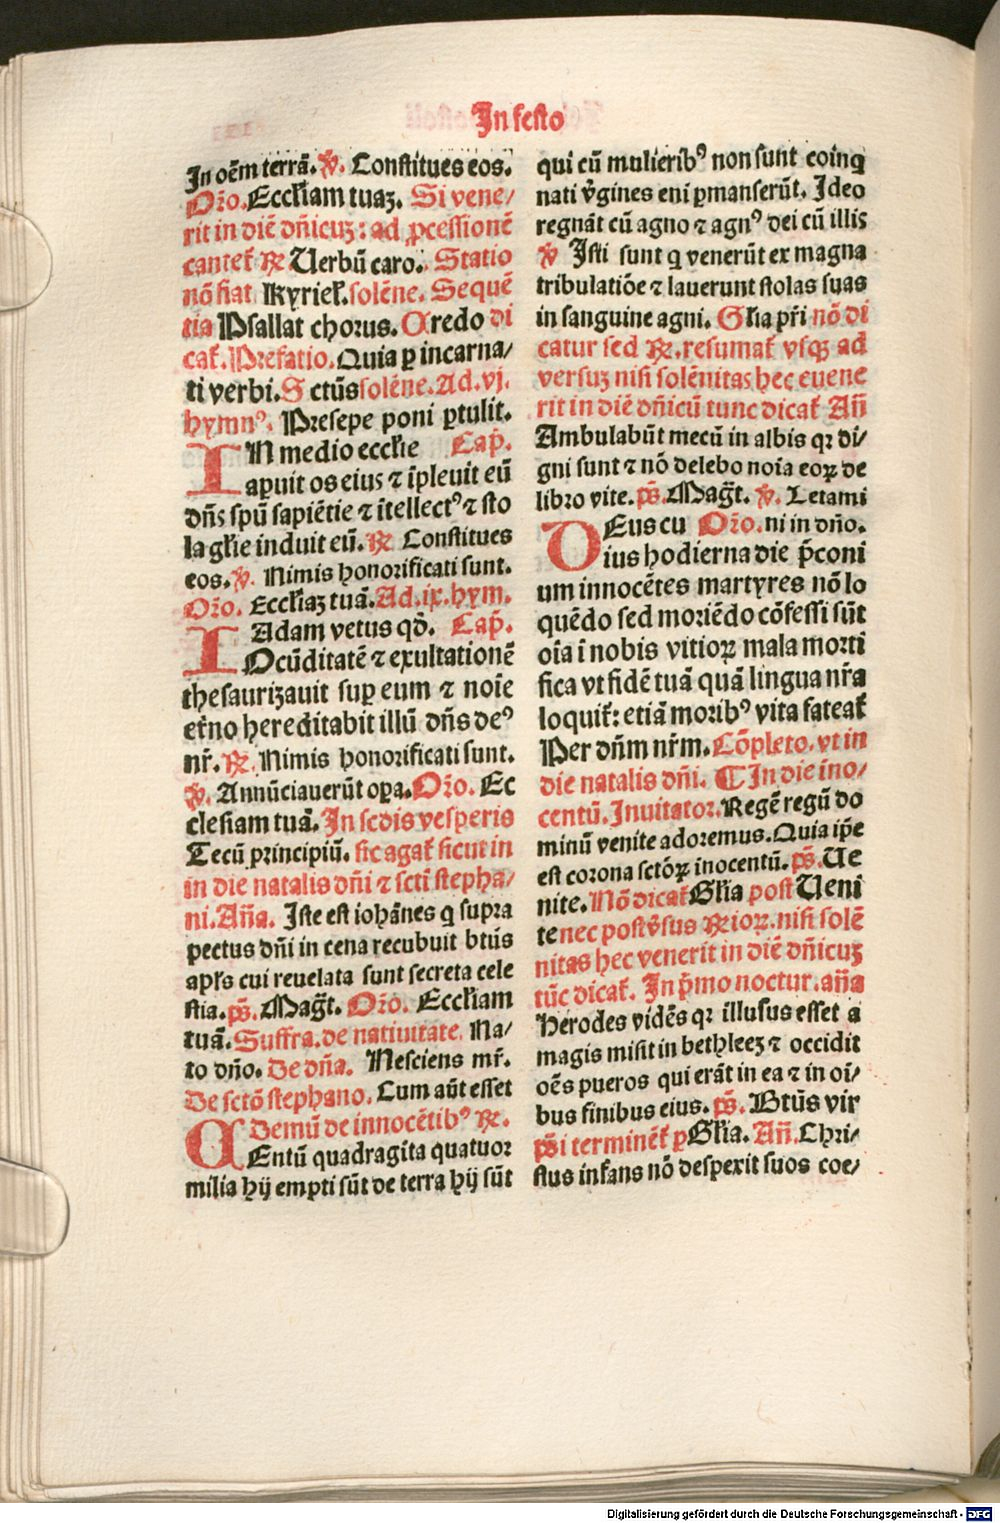 In festo
In oēm terrā. ℣. Constitues eos.
Oro. Eccl'iam tuaꝫ. Si vene/
rit in diē dn̄icuꝫ: ad ꝓcessionē
cantet᷑ ℟ Uerbū caro. Statio
nō fiat. Kyriel'. solēne. Sequē
tia Psallat chorus. Credo di
cat᷑. Prefatio. Quia ꝑ incarna/
ti verbi. Sctūs solēne. Ad. vj.
hymnꝰ. Presepe poni ꝑtulit.
IN medio eccl'ie Cap̄.
aꝑuit os eius ⁊ īpleuit eū
dn̄s spū sapiētie ⁊ ītellectꝰ ⁊ sto
la gl'ie induit eū. ℟ Constitues
eos. ℣. Nimis honorificati sunt.
Oro. Eccl'iaꝫ tuā. Ad. ix. hym.
Adam vetus qd̄. Cap̄.
IOcūditatē ⁊ exultationē
thesaurizauit suꝑ eum ⁊ noīe
et᷑no hereditabit illū dn̄s deꝰ
nr̄. ℟. Nimis honorificati sunt.
℣. Annūciauerūt oꝑa. Oro. Ec
clesiam tuā. In scdis vesperis
Tecū principiū. sic agat᷑ sicut in
in die natalis dn̄i ⁊ scti stepha/
ni. Aña. Iste est iohānes q supra
pectus dn̄i in cena recubuit btūs
apl's cui reuelata sunt secreta cele
stia. ps̄. Maḡt. Oro. Eccl'iam
tuā. Suffra. de natiuitate. Na/
to dn̄o. De dn̄a. Nesciens mr̄.
De sctō stephano. Cum aūt esset
Ademū de innocētibꝰ ℟.
CEntū quadragita quatuor
milia hij empti sūt de terra hij sūt
qui cū mulieribꝰ non sunt coinq
nati v̄gines eni ꝑmanserūt. Ideo
regnāt cū agno ⁊ agnꝰ dei cū illis
℣ Isti sunt q venerūt ex magna
tribulatiōe ⁊ lauerunt stolas suas
in sanguine agni. Gl'ia pr̄i nō di
catur sed ℟. resumat᷑ vsqꝫ ad
versuꝫ nisi solēnitas hec euene
rit in diē dn̄icū tunc dicat᷑ An̄
Ambulabūt mecū in albis qꝛ di/
gni sunt ⁊ nō delebo noīa eoꝝ de
libro vite. ps̄. Mag̃t. ℣. Letami
DEus cu Oro. ni in dn̄o.
ius hodierna die p̄coni
um innocētes martyres nō lo
quēdo sed moriēdo cōfessi sūt
oīa ī nobis vitioꝝ mala morti
fica vt fidē tuā quā lingua nr̄a
loquit᷑: etiā moribꝰ vita fateat᷑
Per dn̄m nr̄m. Cōpleto. vt in
die natalis dn̄i. ¶ In die ino/
centū. Inuitator. Regē regū do
minū venite adoremus. Quia ip̄e
est corona sctōꝝ inocentū. ps̄. Ue
nite. Nō dicat᷑ Gl'ia post Ueni
te nec post v̄sus ℟ioꝝ. nisi solē
nitas hec venerit in diē dn̄icuꝫ
tūc dicat᷑. In p̄mo noctur. an̄a
Herodes vidēs qꝛ illusus esset a
magis misit in bethleeꝫ ⁊ occidit
oēs pueros qui erāt in ea ⁊ in oī/
bus finibus eius. ps̄. Btūs vir
ps̄i terminēt᷑ ꝑ Gl'ia. An̄. Chri/
stus infans nō despexit suos coe/
Digitalisierung gefördert durch die Deutsche Forschungsgemeinschaft - DFG